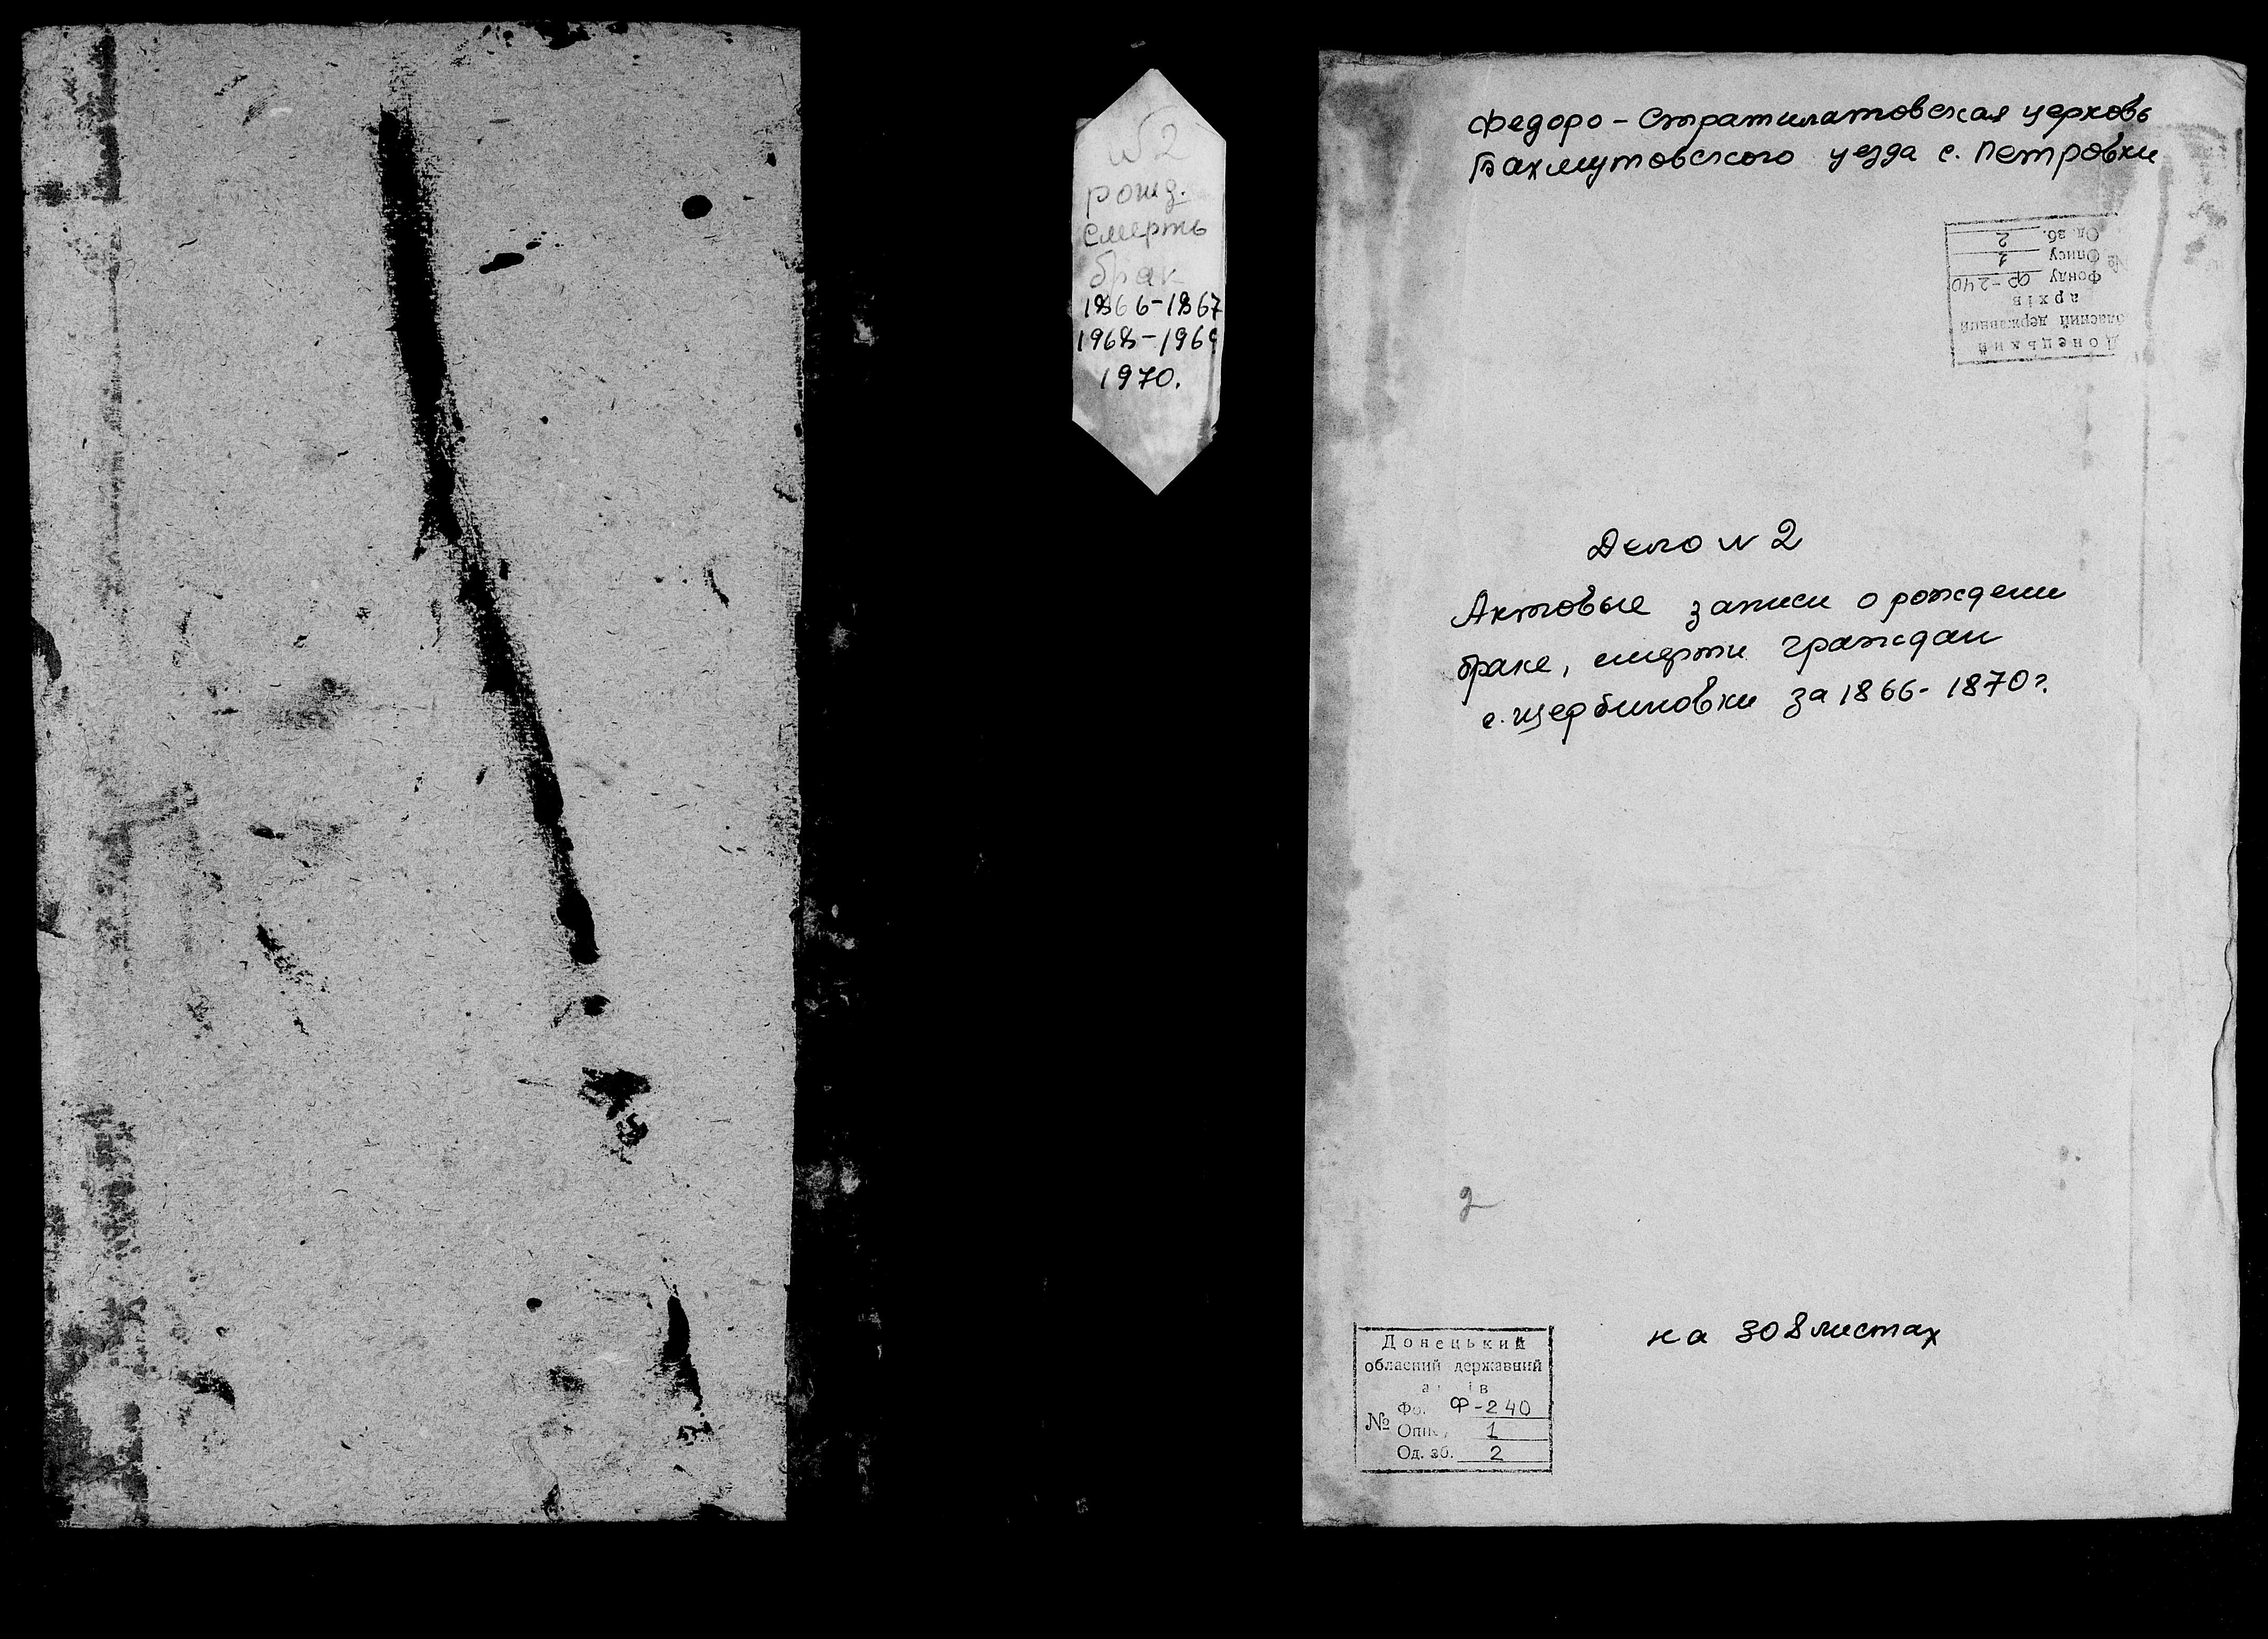 № 2
рожд.
смерть
брак
1866-1867
1968-1969
1970.
Федоро-Стратилатовская церковь
Бахмутовского уезда с. Петровки
Донецький
обласний державний
архів
Фонду Ф-240
№ Опису 1
Од. зб. 2
Дело № 2
Актовые записи о рождении
браке, смерти граждан
с. Щербиновки за 1866-1870г.
2
на 308 листах
Донецький
обласний державний
а ів
Фо. Ф-240
№ Опис 1
Од. зб. 2